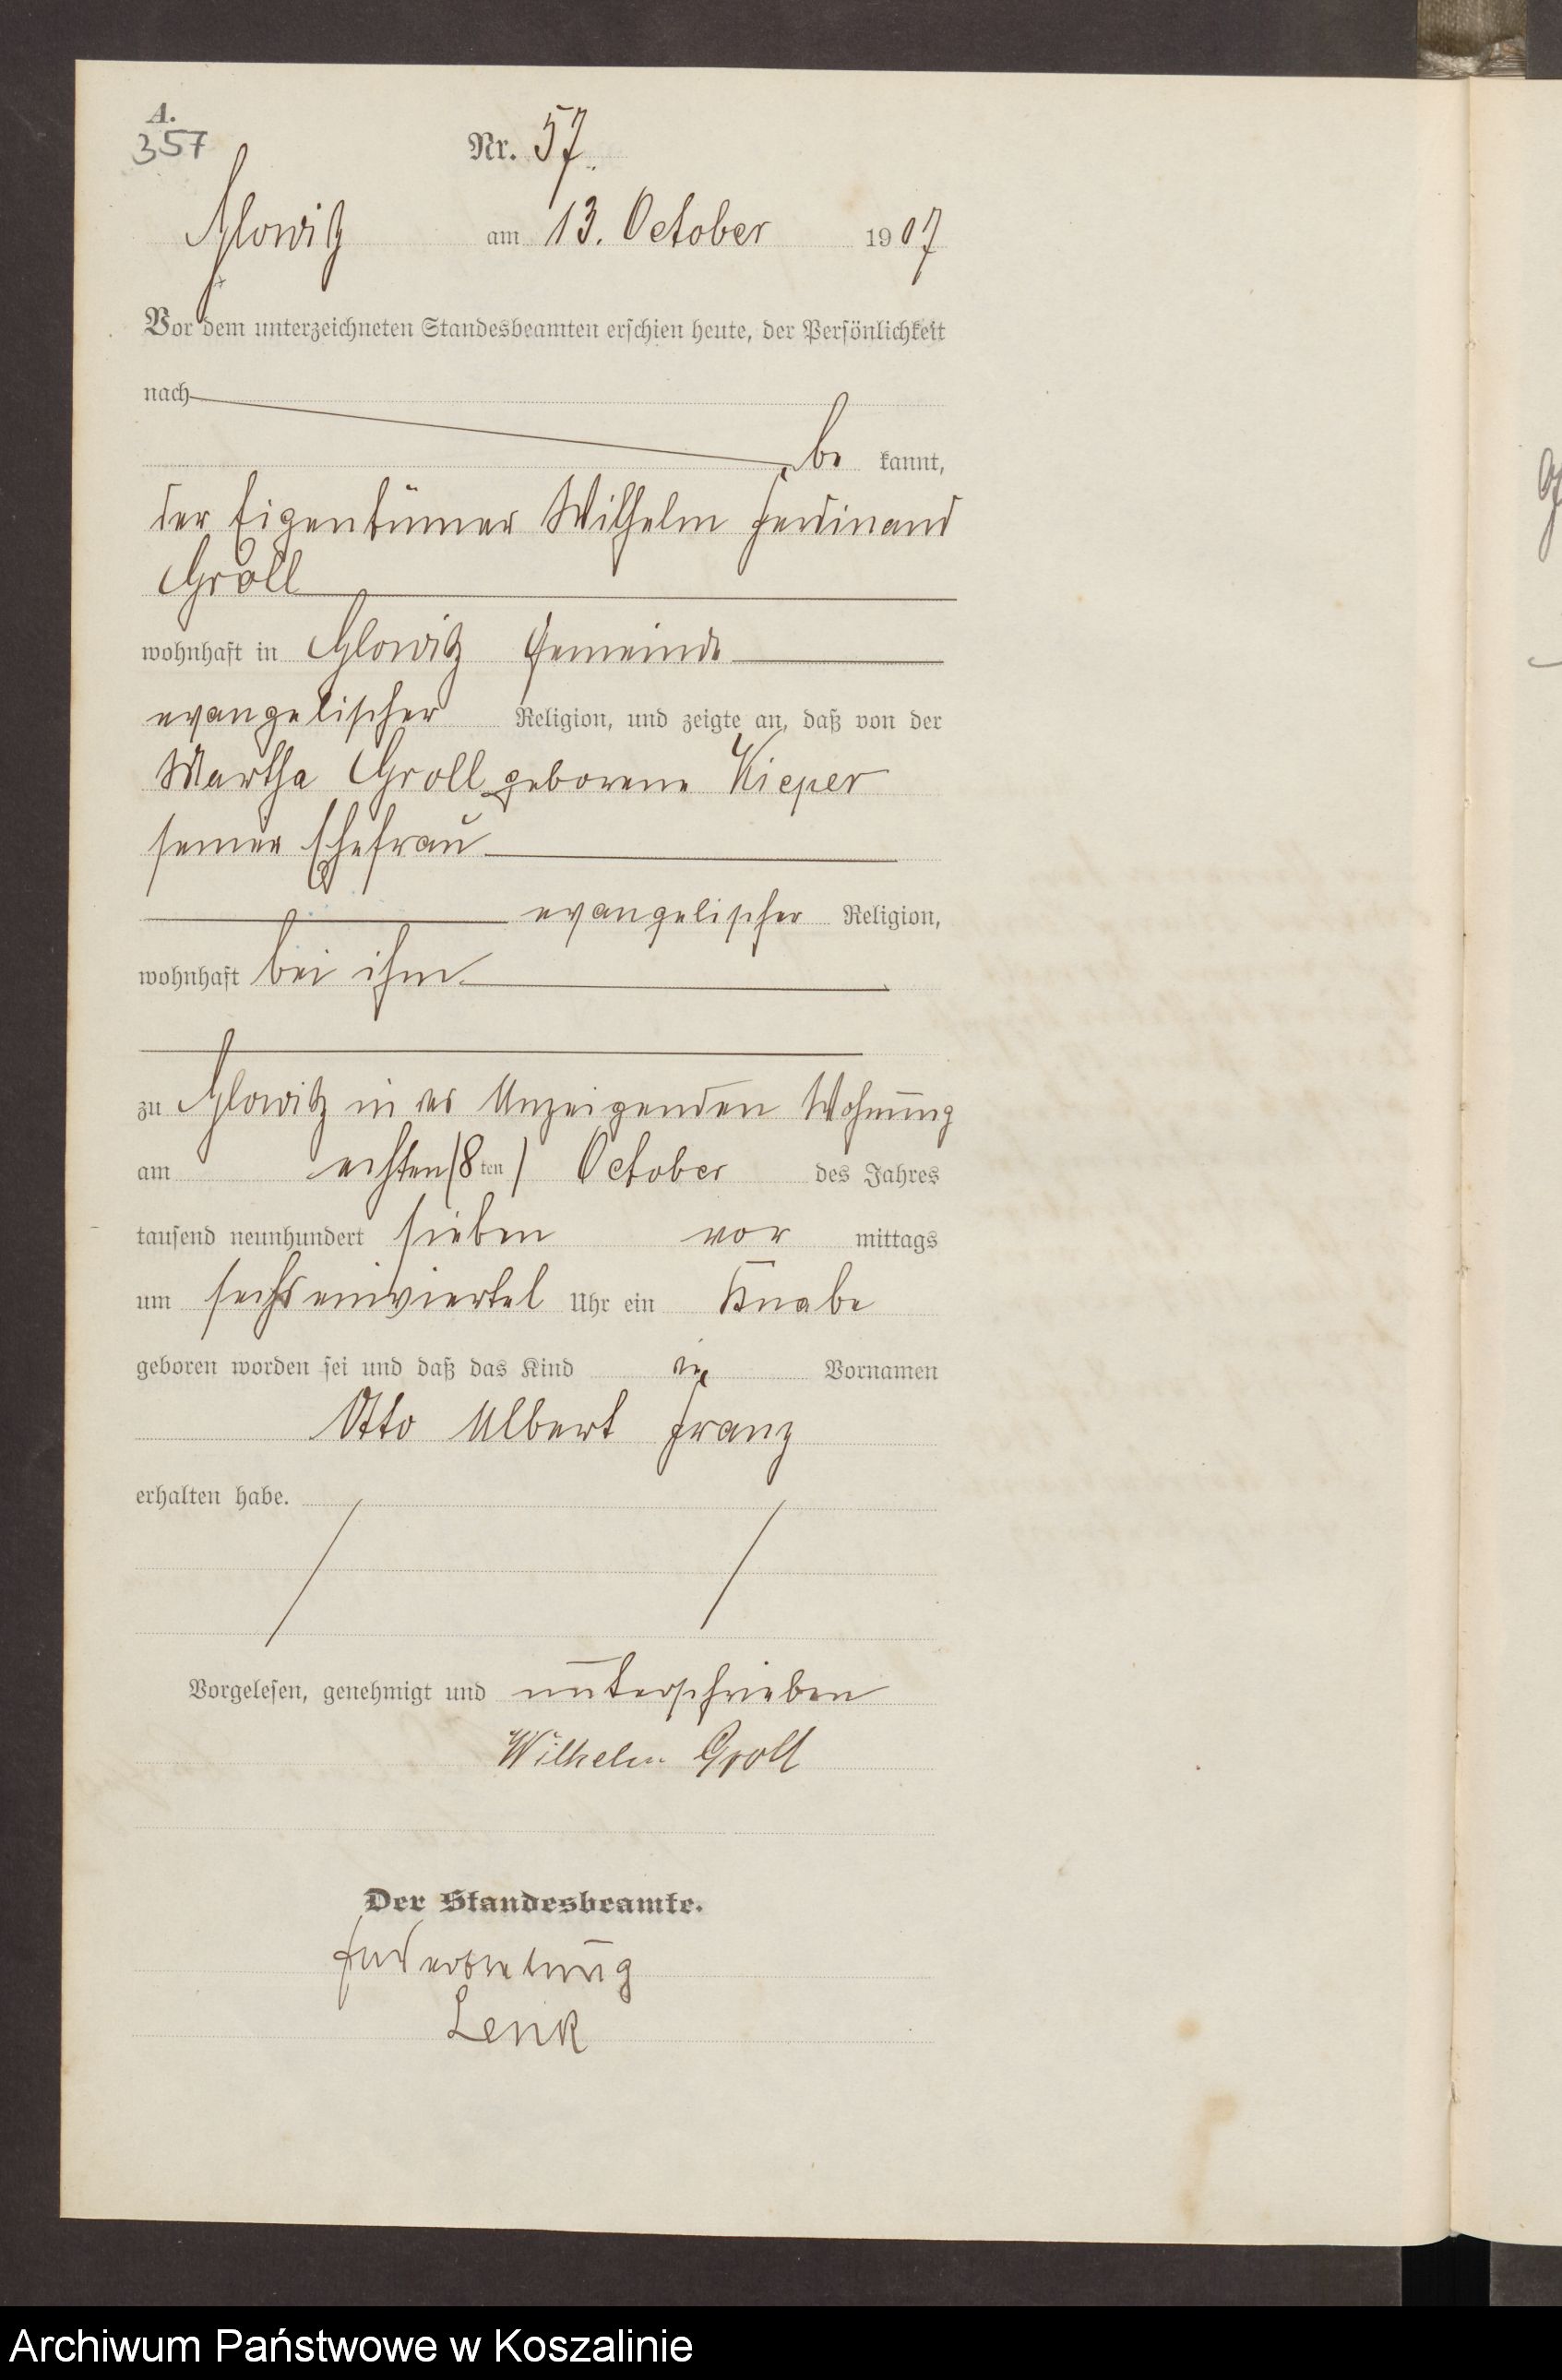 A.
357
Nr. 57.
Glowitz am 13. October 1907
Vor dem unterzeichneten Standesbeamten erschien heute, der Persönlichkeit
nach
be kannt,
der Eigentümer Wilhelm Ferdinand
Groll
wohnhaft in Glowitz Gemeinde
evangelischer Religion, und zeigte an, daß von der
Martha Groll geborene Kieper
seiner Ehefrau
evangelischer Religion,
wohnhaft bei ihm
zu Glowitz in des Anzeigenden Wohnung
am achten (8ten) October des Jahres
tausend neunhundert sieben vor mittags
um sechseinviertel Uhr ein Knabe
geboren worden sei und daß das Kind die Vornamen
Otto Albert Franz
erhalten habe.
Vorgelesen, genehmigt und unterschrieben
Wilhelm Groll
Der Standesbeamte.
In Vertretung
Lenk
Archiwum Państwowe w Koszalinie